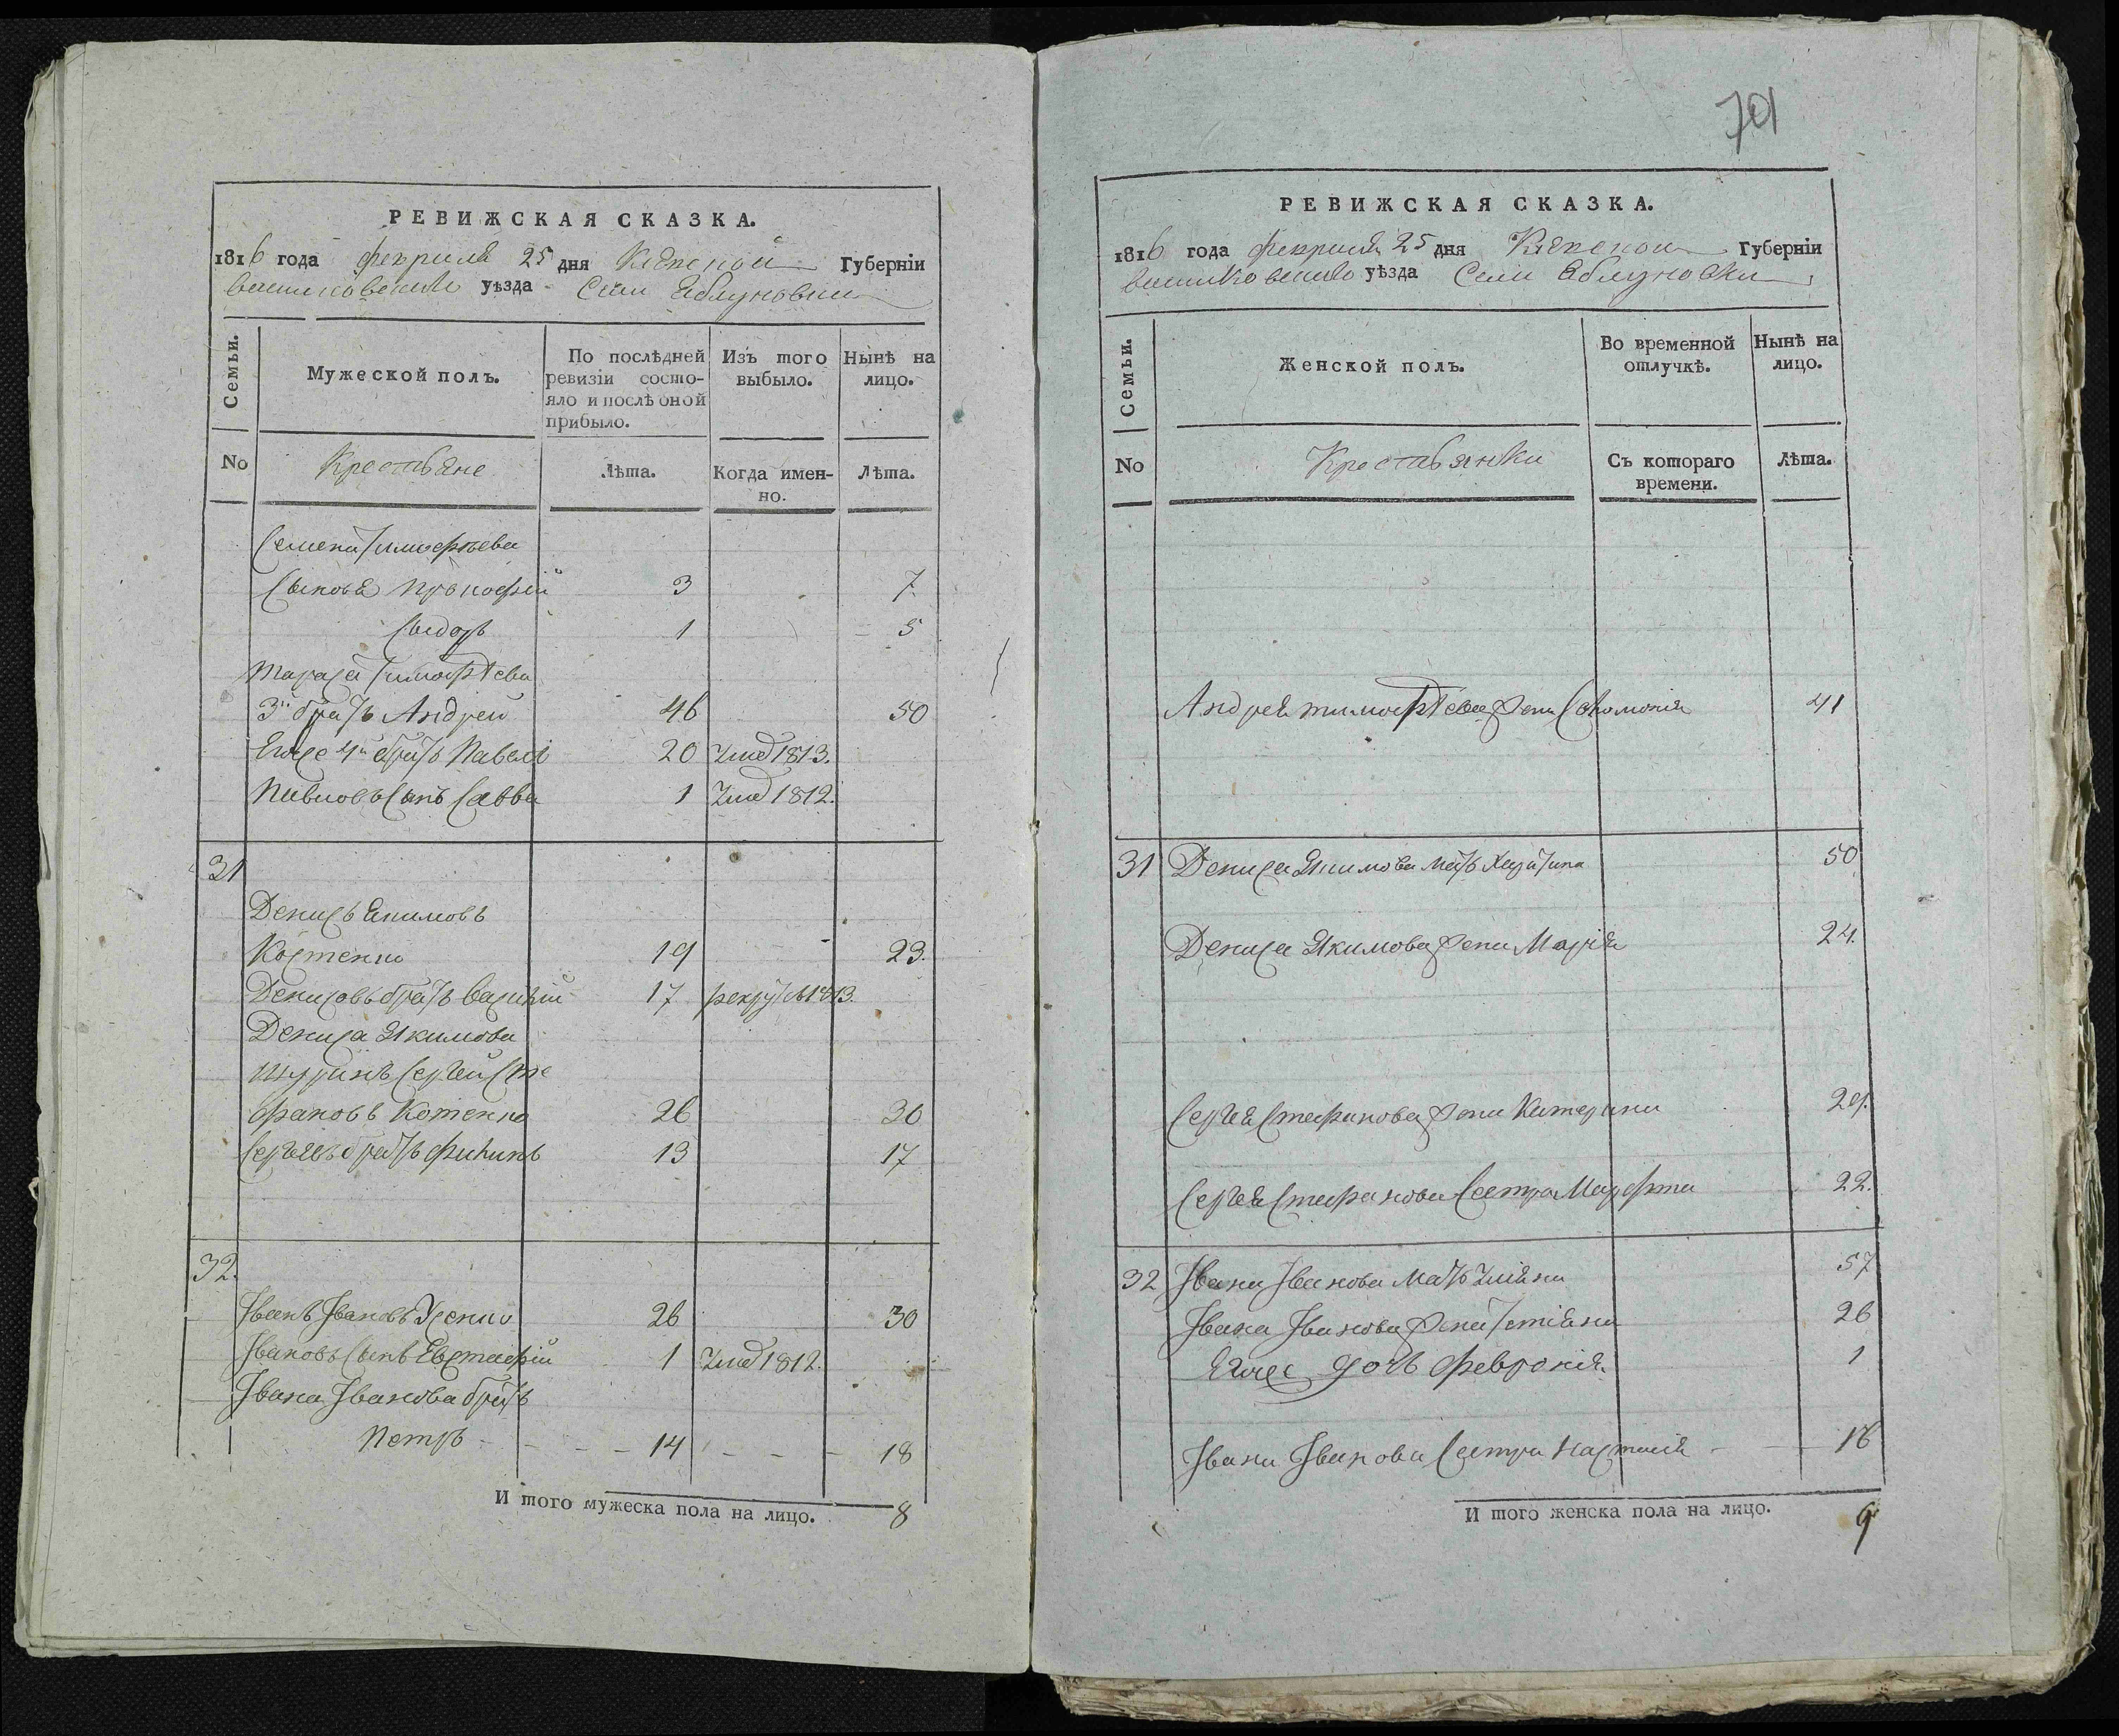 РЕВИЖСКАЯ СКАЗКА.
1816 года февраля 25 дня Кіевской Губерніи
васильковскаго уѣзда Села Яблуновки
Семьи.
Мужеской полъ.
По послѣдней ревизіи состо-
яло и послѣ оной
прибыло.
Изъ того выбыло.
Нынѣ на лицо.
No
Крестьяне
Лѣта.
Когда имен-
но.
Лѣта.
Семена Тимофѣева
Сыновя Прокофій 3 7
Сидоръ 1 5
Тараса Тимофѣева
3й братъ Андрей 46 50
Егоже 4й братъ Павелъ 20 Умеръ 1813.
Павловъ Сынъ Савва 1 Умеръ 1812.
31
Денисъ Якимовъ
Костенко 19 23.
Денисовъ братъ Василій 17 рекрутъ 1813.
Дениса Якимова
Шуринъ Сергѣй Сте
фановъ Котенко 26 30
Сергѣевъ братъ 13 17
32.
Іванъ Івановъ Усенко 26 30
Івановъ Сынъ Евстафій 1 Умеръ 1812.
Івана Іванова братъ
Петръ - - - - 14 - - - 18
И того мужеска пола на лицо. 8
701
РЕВИЖСКАЯ СКАЗКА.
1816 года февраля 25 дня Кіевской Губерніи
васильковскаго уѣзда Села Яблуновки
Семьи.
Женской полъ.
Во временной отлучкѣ.
Нынѣ на лицо.
No
Крестьянки
Съ котораго времени.
Лѣта.
Андрея тимофѣева жена Соломонія 41
31 Дениса Якимова мать Харитина 50
Дениса Якимова жена Марія 24.
Сергѣя Стефанова жена Катерина 29.
Сергѣя Стефанова Сестра Марфта 22.
32 Івана Іванова мать Уліяна 57
Івана Іванова жена Тетіяна 26
Егоже дочь Февронія. 1
Івана Іванова Сестра Настасія - 16
И того женска пола на лицо. 9